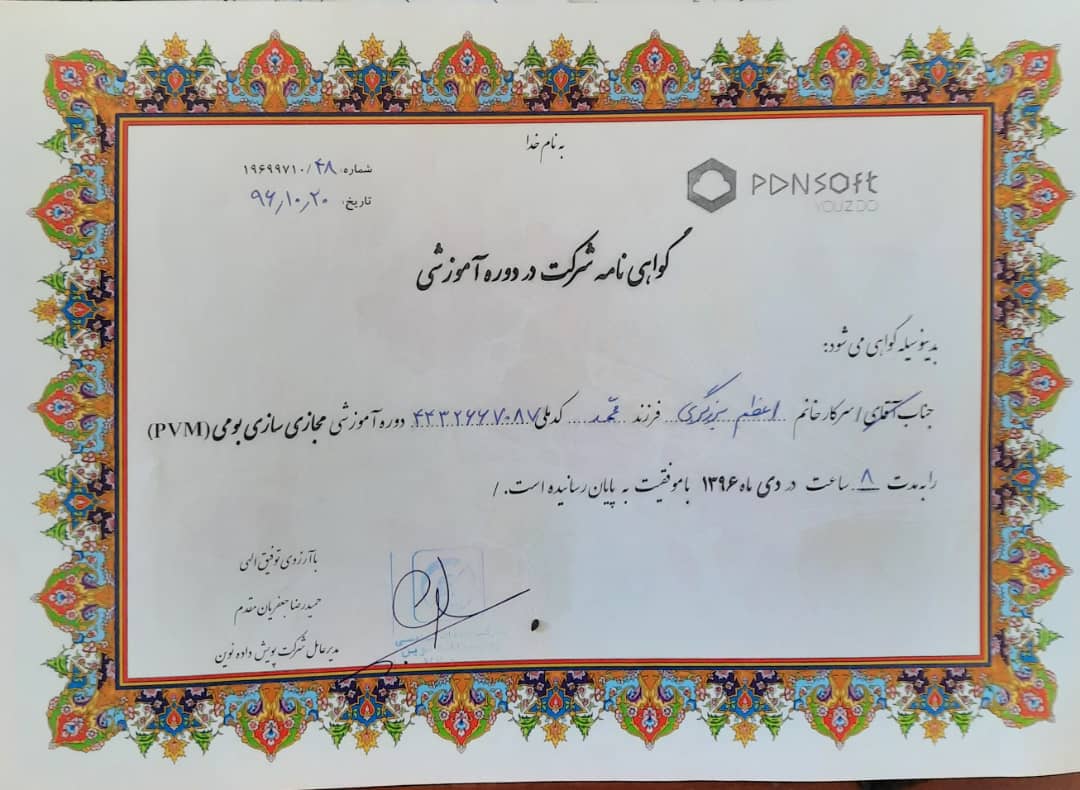 به نام خدا
PDNSOft
YOUZDO
شماره: ۱۹۶۹۹۷۱۰/۴۸
تاریخ: ۹۶/۱۰/۲۰
گواهی نامه شرکت در دوره آموزشی
بدینوسیله گواهی می شود:
جناب آقای / سرکار خانم اعظم برزگری فرزند محمد کد ملی ۴۴۳۲۶۶۷۰۸۷ دوره آموزشی مجازی سازی بومی (PVM)
را به مدت ۸ ساعت در دی ماه ۱۳۹۶ با موفقیت به پایان رسانیده است. /
با آرزوی توفیق الهی
حمیدرضا جعفریان مقدم
مدیرعامل شرکت پویش داده نوین